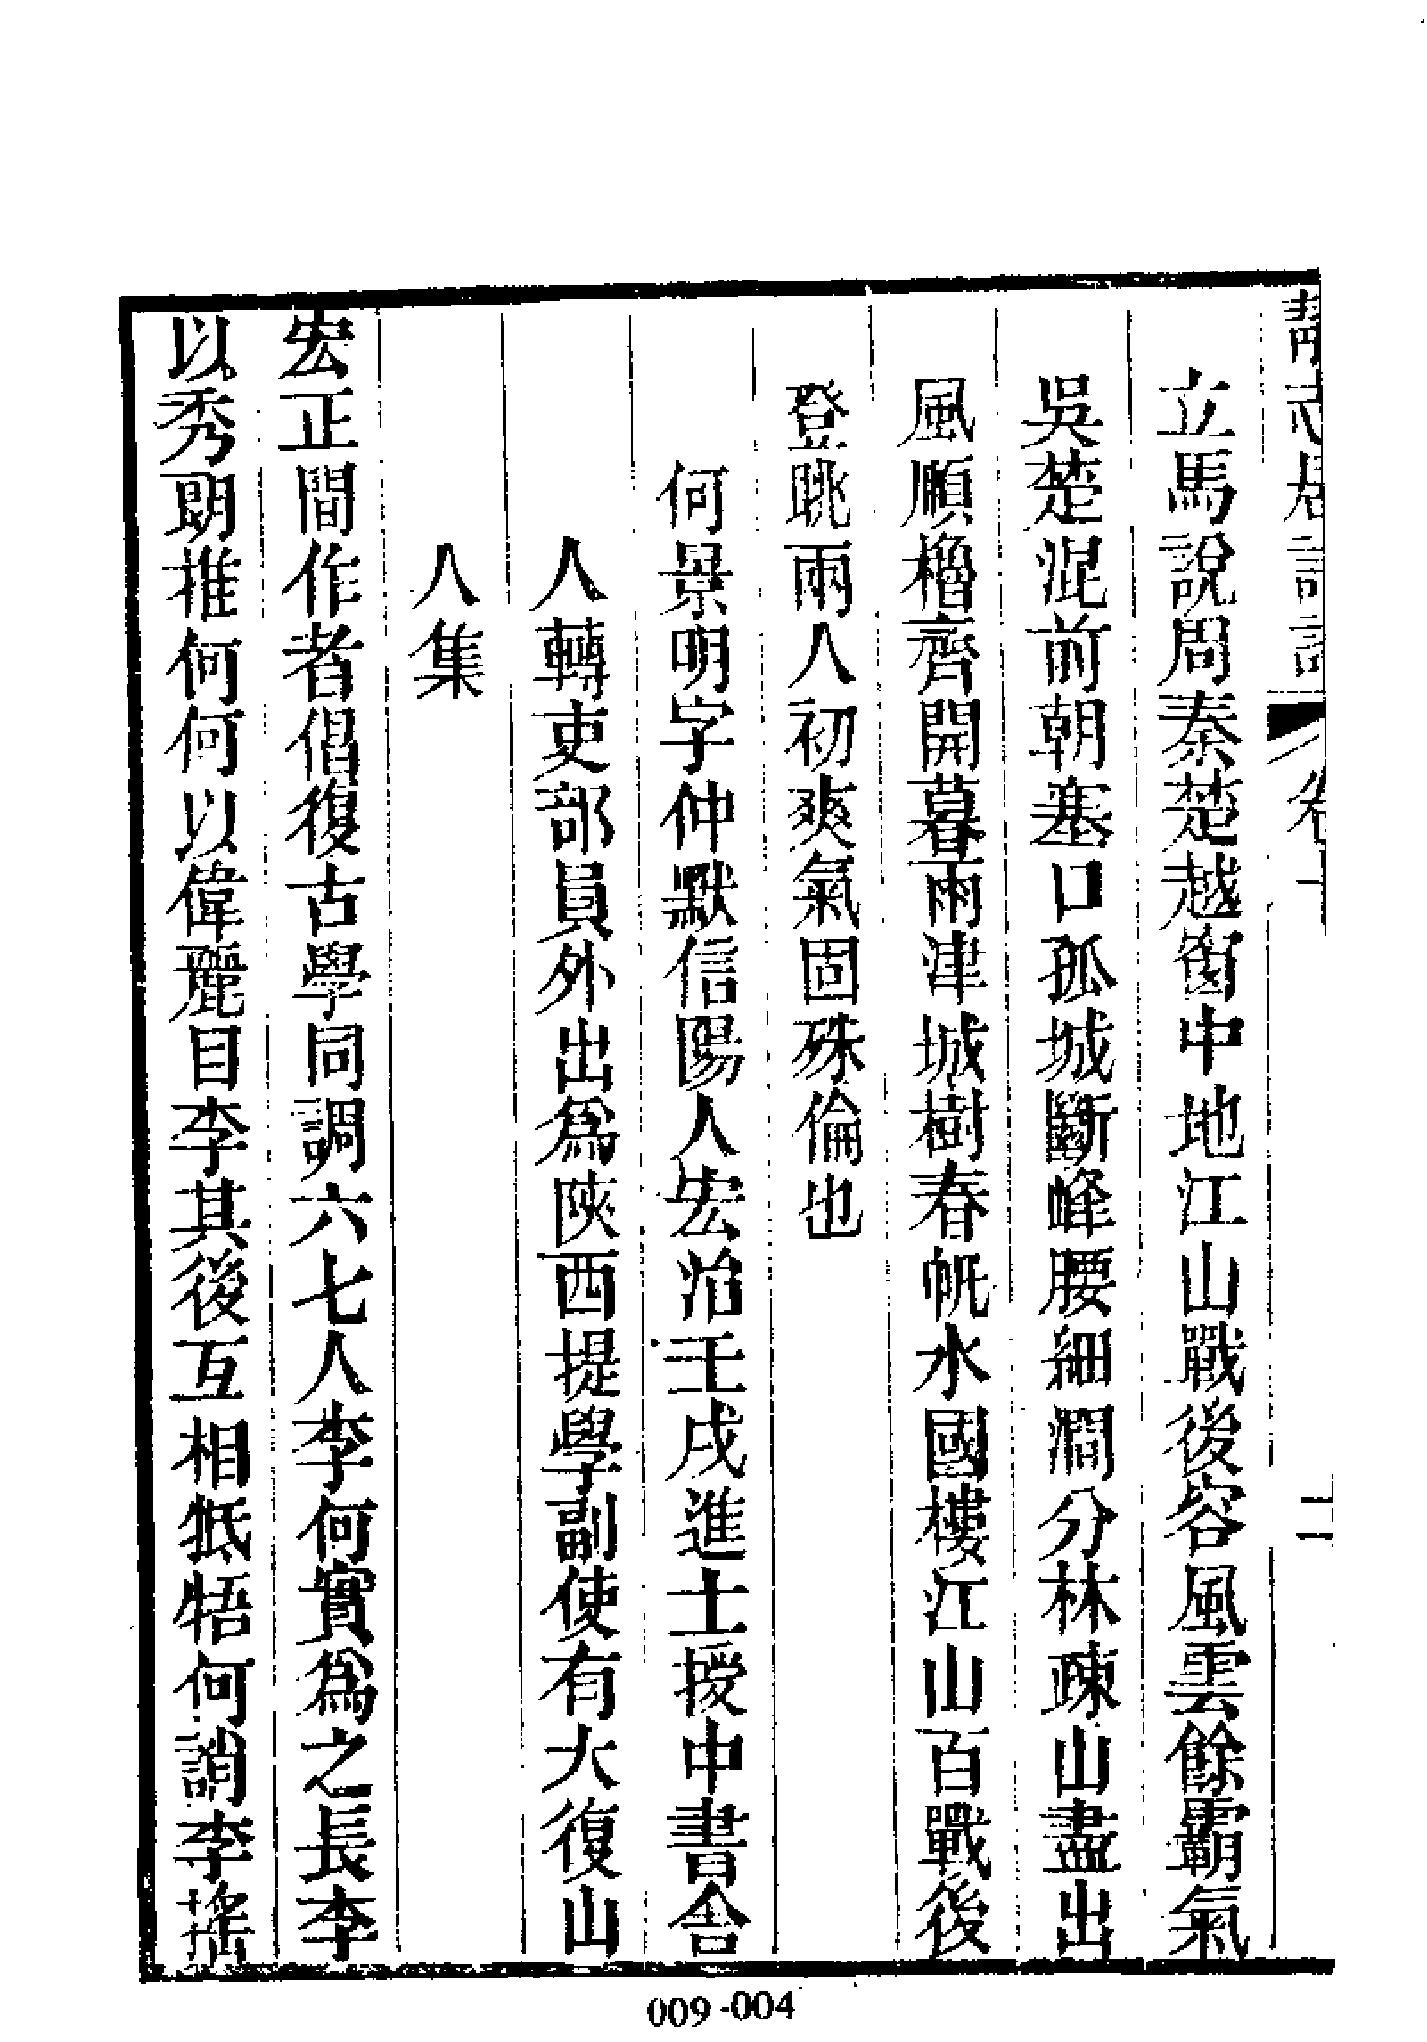 靜志居詩話 卷十 二
立馬說周秦楚越囱中地江山戰後容風雲餘霸氣
吳楚混前朝塞口孤城斷峰腰細澗分林疎山盡出
風順櫓齊開暮雨津城樹春帆水國樓江山百戰後
登眺雨人初爽氣固殊倫也
何景明字仲默信陽人宏治壬戌進士授中書舍
人轉吏部員外出爲陝西提學副使有大復山
人集
宏正間作者倡復古學同調六七人李何實爲之長李
以秀朗推何何以偉麗目李其後互相牴牾何誚李搖
009-004